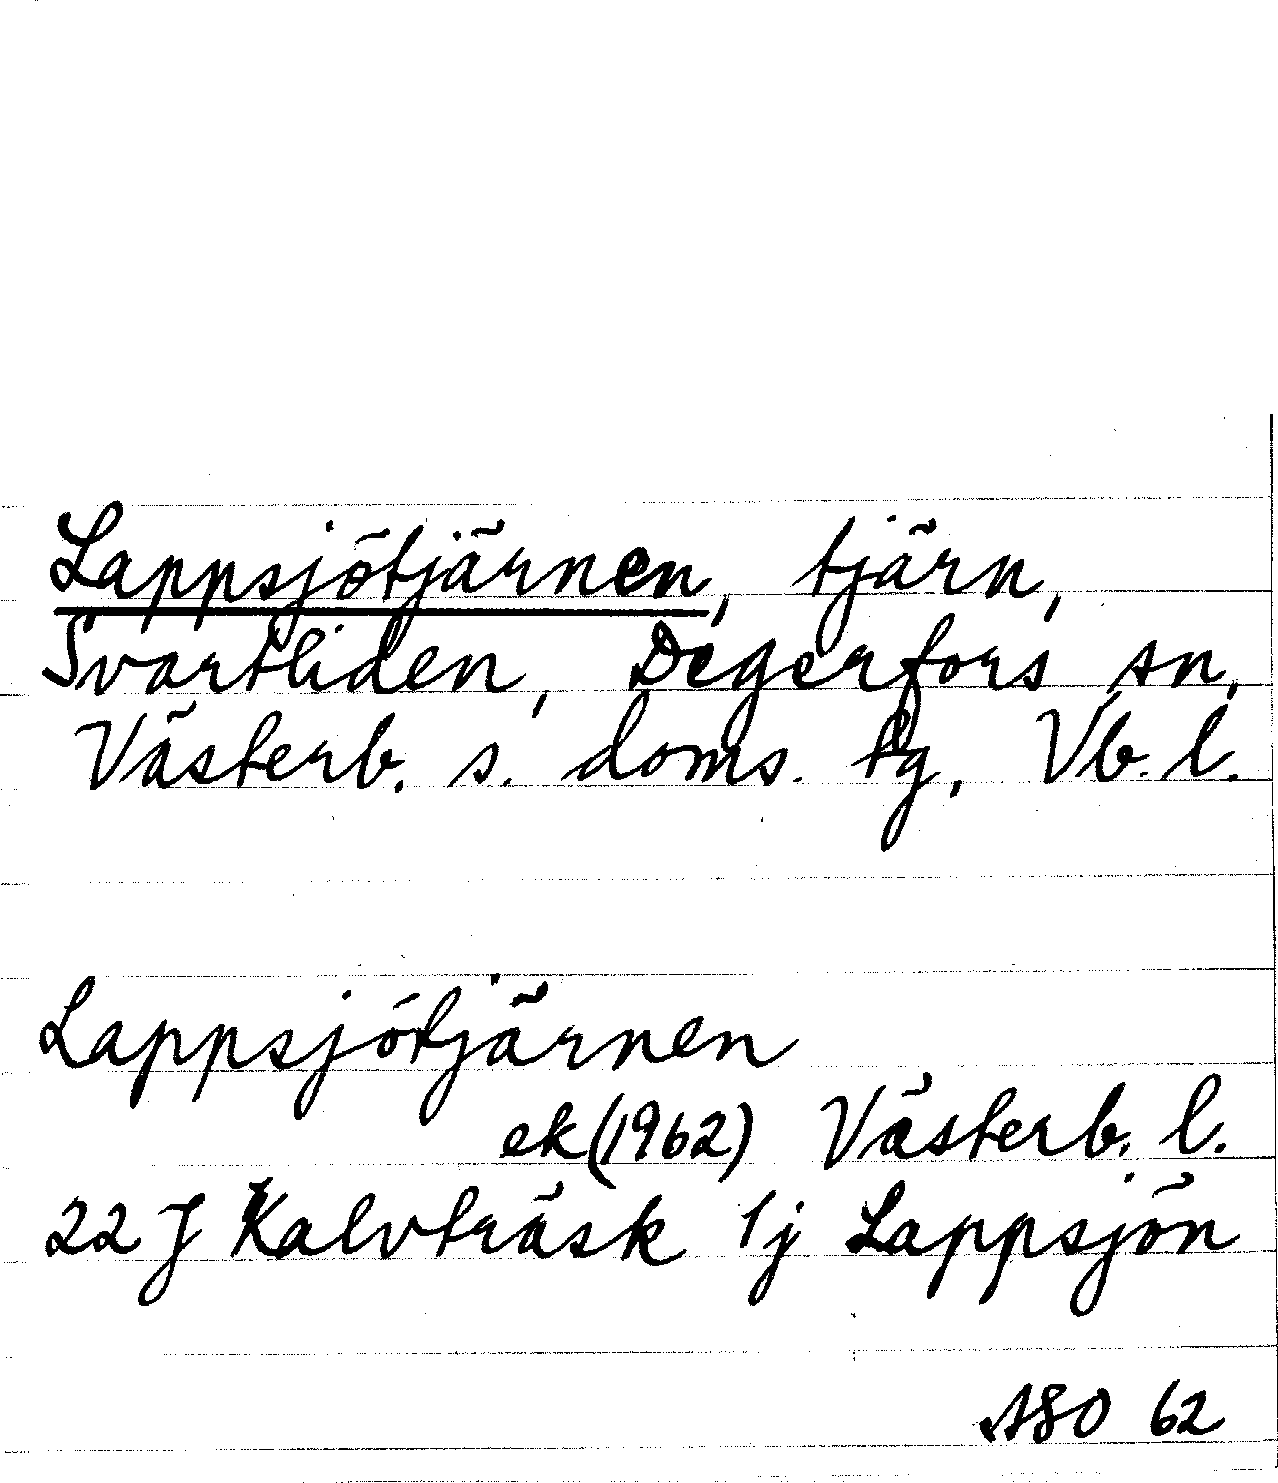 Lappsjötjärnen, tjärn,
Svartliden, Degerfors sn,
Västerb. s. doms. tg, Vb. l.
Lappsjötjärnen
ek (1962) Västerb. l.
22 J Kalvträsk 1j Lappsjön
ASO 62